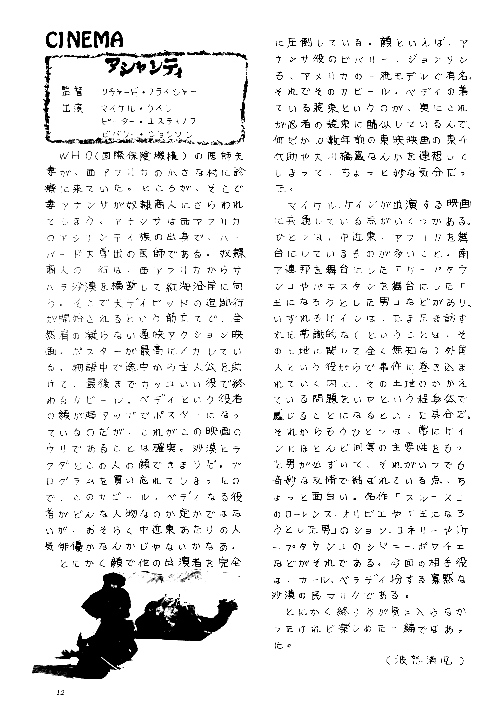 CINEMA
アシャンティ
監督 リチャード・フライシャー
出演 マイケル・ケイン
ピーター・ユスティノフ
ビバリー・ジョンソン
WHO(国際保健機構)の医師夫
妻が、西アフリカの小さな村に診
療に来ていた。ところが、そこで
妻アナンサが奴隷商人にさらわれ
てしまう。アナンサは西アフリカ
のアシャンティ族の出身で、ハー
バード大学出の医師である。奴隷
商人の一行は、西アフリカからサ
ハラ沙漠を横断して紅海沿岸に向
う。そこで夫デイビッドの追跡行
が開始されるという筋立てで、全
然肩の凝らない追跡アクション映
画。ポスターが最高にイカしてい
る。物語中で途中から主人公を助
けて、最後までカッコいい役で終
わるカビール・ベディという役者
の顔が
ているのだが、これがこの映画の
ウリであることは確実。沙漠とラ
クダとこの人の顔できまりだ。プ
ログラムを買い忘れてしまったの
で、このカビール・ベディなる役
者がどんな人物なのか定かではな
いが、おそらく中近東あたりの人
気俳優かなんかじゃないかなあ。
とにかく顔で他の出演者を完全
に圧倒している。顔といえば、ア
ナンサ役のビバリー・ジョンソン
も、アメリカの一流モデルで有名。
それでそのカビール・ベディの着
ている装束というのが、実にこれ
が忍者の装束に酷似しているんで、
何だか十数年前の東映映画の東千
代助や大川橋蔵なんかを連想して
しまって、ちょっと妙な気分だっ
た。
マイケル・ケインが出演する映画
に共通している点がいくつかある。
ひとつは、中近東、アフリカを舞
台にしているものが多いこと。南
ア連邦を舞台にした
やパキスタンを舞台にした「
王になろうとした男」などがあり、
いずれもケインは、たまたま訪ず
れた常識的な(ということは、そ
の土地に関して全く無知な)外国
人という役がらで事件に巻き込ま
れていく内に、その土地のかかえ
ている問題をいやという程身体で
感じることになるといった具合だ。
それからもうひとつは、常にケイ
ンとほとんど同等の主要性をもっ
た男が必ずいて、それがいつでも
奇妙な友情で結ばれている点。ち
ょっと面白い。名作「スルース」
のローレンス・オリビエや「王になろ
うとした男」のショーン・コネリーや「
のシドニー・ポワチエ
などがそれである。今回の相手役
は、カビール・ベディ扮する寡黙な
沙漠の民マリクである。
とにかく終り方が気に入らなか
ったけれど楽しめた一編ではあっ
た。
12